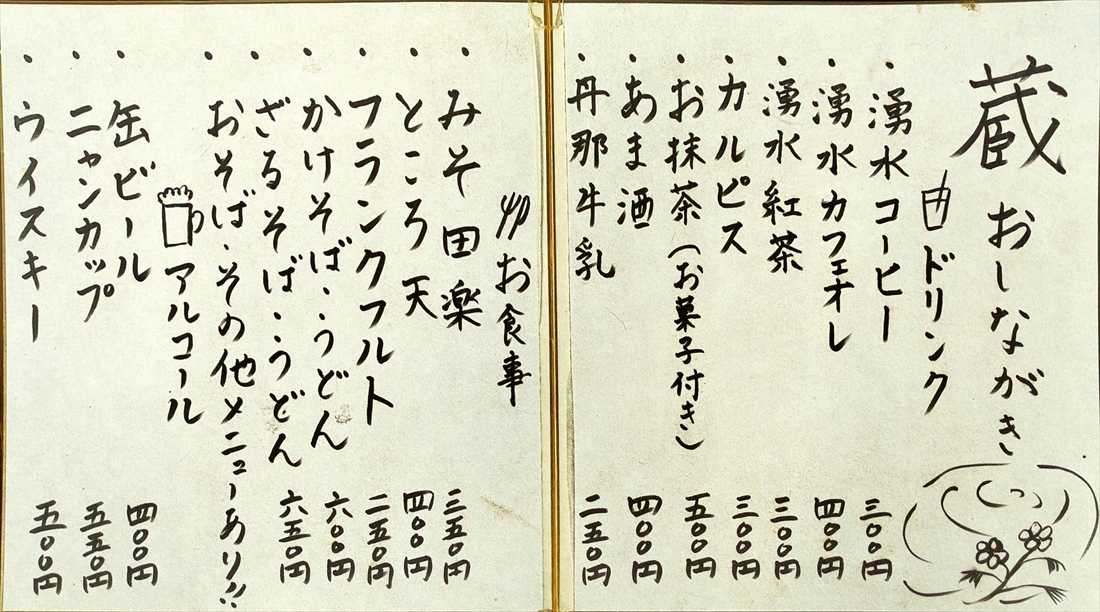 蔵 おしながき
ドリンク
・湧水コーヒー 三〇〇円
・湧水カフェオレ 四〇〇円
・湧水紅茶 三〇〇円
・カルピス 三〇〇円
・お抹茶(お菓子付き) 五〇〇円
・あま酒 四〇〇円
・丹那牛乳 二五〇円
お食事
・みそ田楽 三五〇円
・ところ天 四〇〇円
・フランクフルト 二五〇円
・かけそば・うどん 六〇〇円
・ざるそば・うどん 六五〇円
・おそば・その他メニューあり!!
アルコール
・缶ビール 四〇〇円
・ニャンカップ 五五〇円
・ウイスキー 五〇〇円